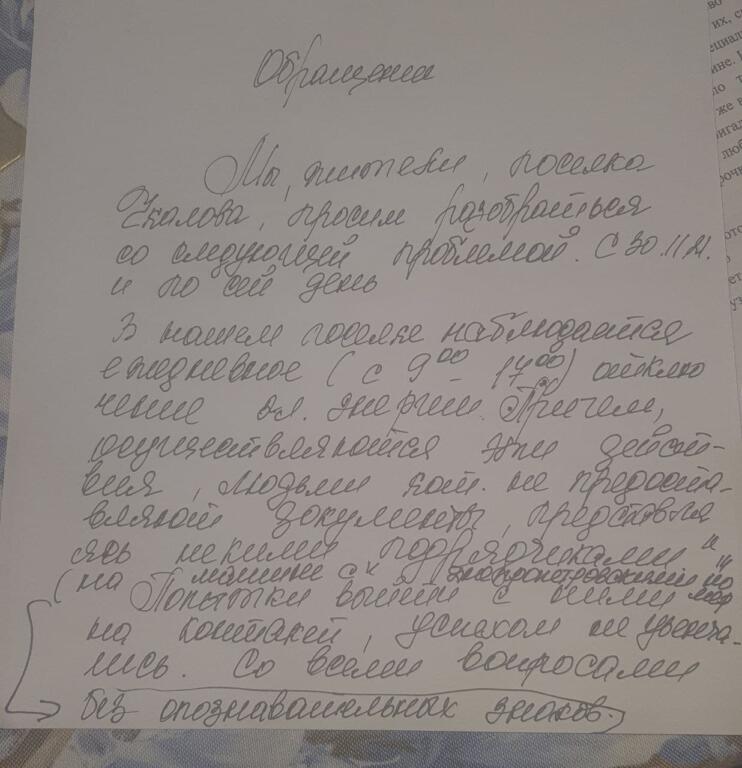 Обращение
Мы, жители, поселка
Чкалова, просим разобраться
со следующей проблемой. С 30.11.21.
и по сей день
В нашем поселке наблюдается
ежедневное (с 9 00 17 00) отклю
чение эл. энергии. Причем,
осуществляются эти дейст-
вия, людьми кот. не предоста-
вляют документы, представля
ясь некими подрядчиками"
(на машине с днепропетровскими но
мер
Попытки выйти с ними
на контакт, успехом не увенча-
лись. Со всеми вопросами
без опознавательных знаков.)
их, с
ециал
ине.
ло
же в
игал
люб
рочн